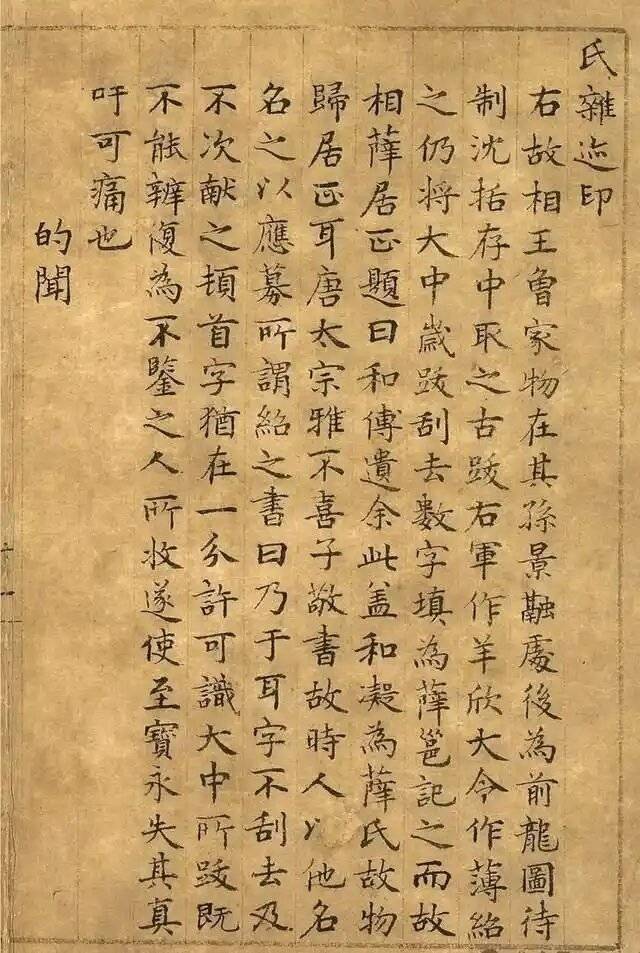 氏雜迹印
右故相王魯家物在其孫景融處後為前龍圖待
制沈括存中取之古跋右軍作羊欣大令作薄紹
之仍將大中歲跋刮去數字填為薛邕記之而故
相薛居正題曰和傳遺余此蓋和凝為薛氏故物
歸居正耳唐太宗雅不喜子敬書故時人以他名
名之以應募所謂紹之書曰乃于耳字不刮去及
不次献之頓首字猶在一分許可識大中所跋既
不能辨復為不鑒之人所收遂使至寶永失其真
吁可痛也
的聞
十一